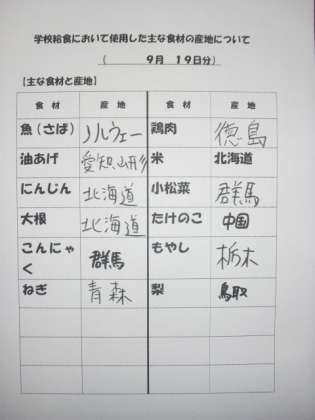 学校給食において使用した主な食材の産地について
(　　　　9月　19日分)
【主な食材と産地】
食　材　産　地　食　材　産　地
魚(さば)　ノルウェー　鶏肉　徳島
油あげ　愛知,山形　米　北海道
にんじん　北海道　小松菜　群馬
大根　北海道　たけのこ　中国
こんにゃく　群馬　もやし　栃木
ねぎ　青森　梨　鳥取